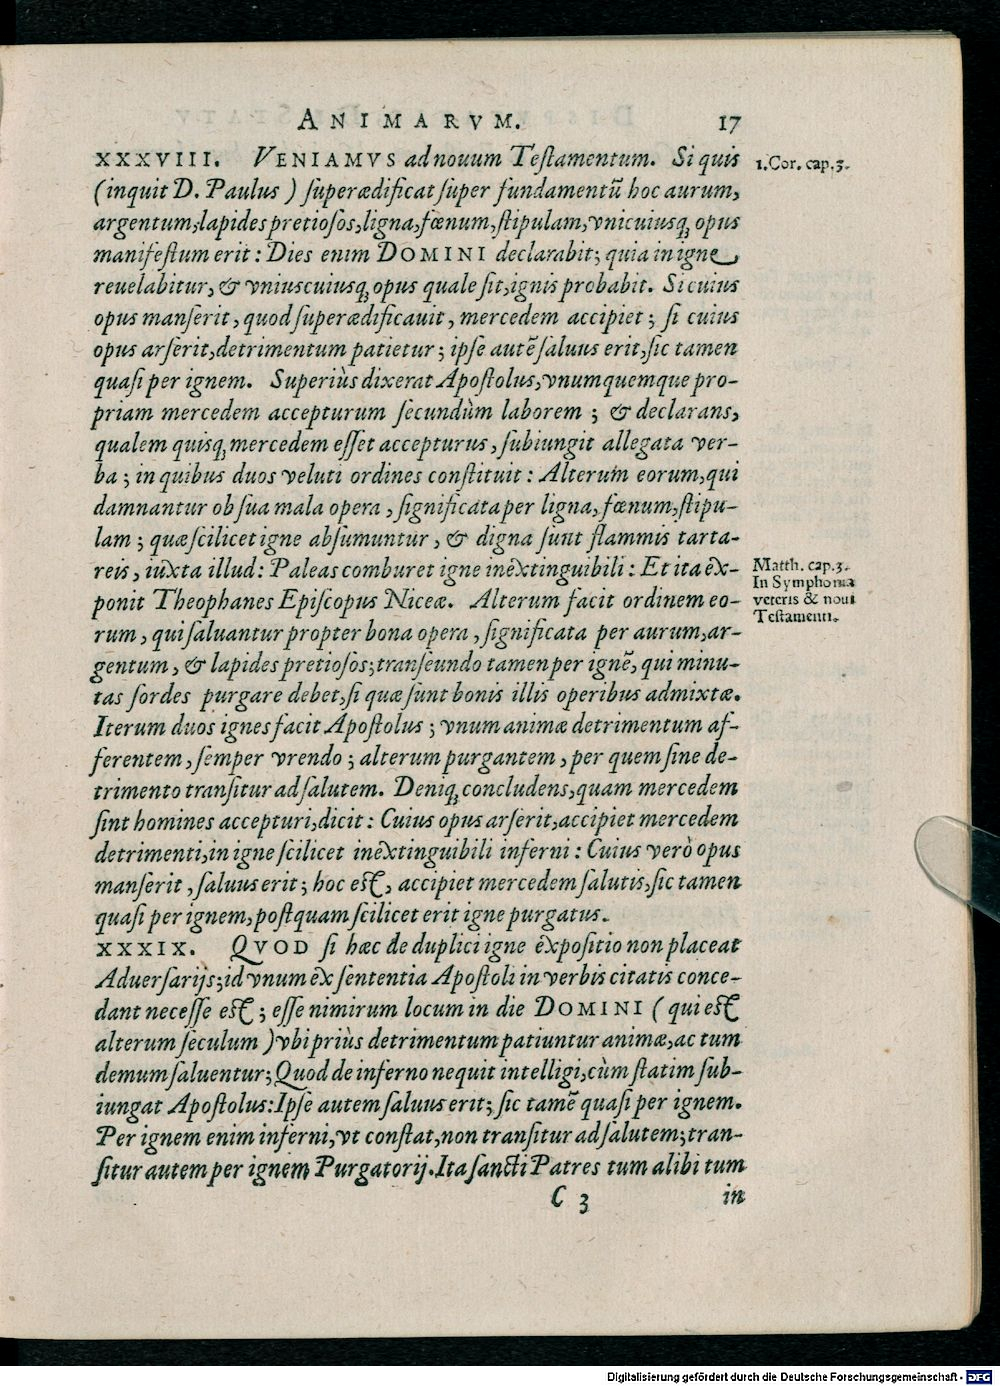 ANIMARVM. 17
XXXVIII. VENIAMVS ad nouum Testamentum. Si quis
1. Cor. cap. 3.
(inquit D. Paulus) superædificat super fundamentũ hoc aurum,
argentum, lapides pretiosos, ligna, fœnum, stipulam, vnicuiusq; opus
manifestum erit: Dies enim DOMINI declarabit; quia in igne
reuelabitur, & vniuscuiusq; opus quale sit, ignis probabit. Si cuius
opus manserit, quod superædificauit, mercedem accipiet; si cuius
opus arserit, detrimentum patietur; ipse autẽ saluus erit, sic tamen
quasi per ignem. Superiùs dixerat Apostolus, vnumquemque pro-
priam mercedem accepturum secundùm laborem; & declarans,
qualem quisq; mercedem esset accepturus, subiungit allegata ver-
ba; in quibus duos veluti ordines constituit: Alterum eorum, qui
damnantur ob sua mala opera, significata per ligna, fœnum, stipu-
lam; quæ scilicet igne absumuntur, & digna sunt flammis tarta-
reis, iuxta illud: Paleas comburet igne inextinguibili: Et ita ex-
Matth. cap. 3.
In Symphonia
veteris & noui
Testamenti.
ponit Theophanes Episcopus Niceæ. Alterum facit ordinem eo-
rum, qui saluantur propter bona opera, significata per aurum, ar-
gentum, & lapides pretiosos; transeundo tamen per ignẽ, qui minu-
tas sordes purgare debet, si quæ sunt bonis illis operibus admixtæ.
Iterum duos ignes facit Apostolus; vnum animæ detrimentum af-
ferentem, semper vrendo; alterum purgantem, per quem sine de-
trimento transitur ad salutem. Deniq; concludens, quam mercedem
sint homines accepturi, dicit: Cuius opus arserit, accipiet mercedem
detrimenti, in igne scilicet inextinguibili inferni: Cuius verò opus
manserit, saluus erit; hoc est, accipiet mercedem salutis, sic tamen
quasi per ignem, postquam scilicet erit igne purgatus.
XXXIX. QVOD si hæc de duplici igne expositio non placeat
Aduersarijs; id vnum ex sententia Apostoli in verbis citatis conce-
dant necesse est; esse nimirum locum in die DOMINI (qui est
alterum seculum) vbi priùs detrimentum patiuntur animæ, ac tum
demum saluentur; Quod de inferno nequit intelligi, cùm statim sub-
iungat Apostolus: Ipse autem saluus erit; sic tamẽ quasi per ignem.
Per ignem enim inferni, vt constat, non transitur ad salutem; tran-
situr autem per ignem Purgatorij. Ita sancti Patres tum alibi tum
C 3 in
Digitalisierung gefördert durch die Deutsche Forschungsgemeinschaft - DFG